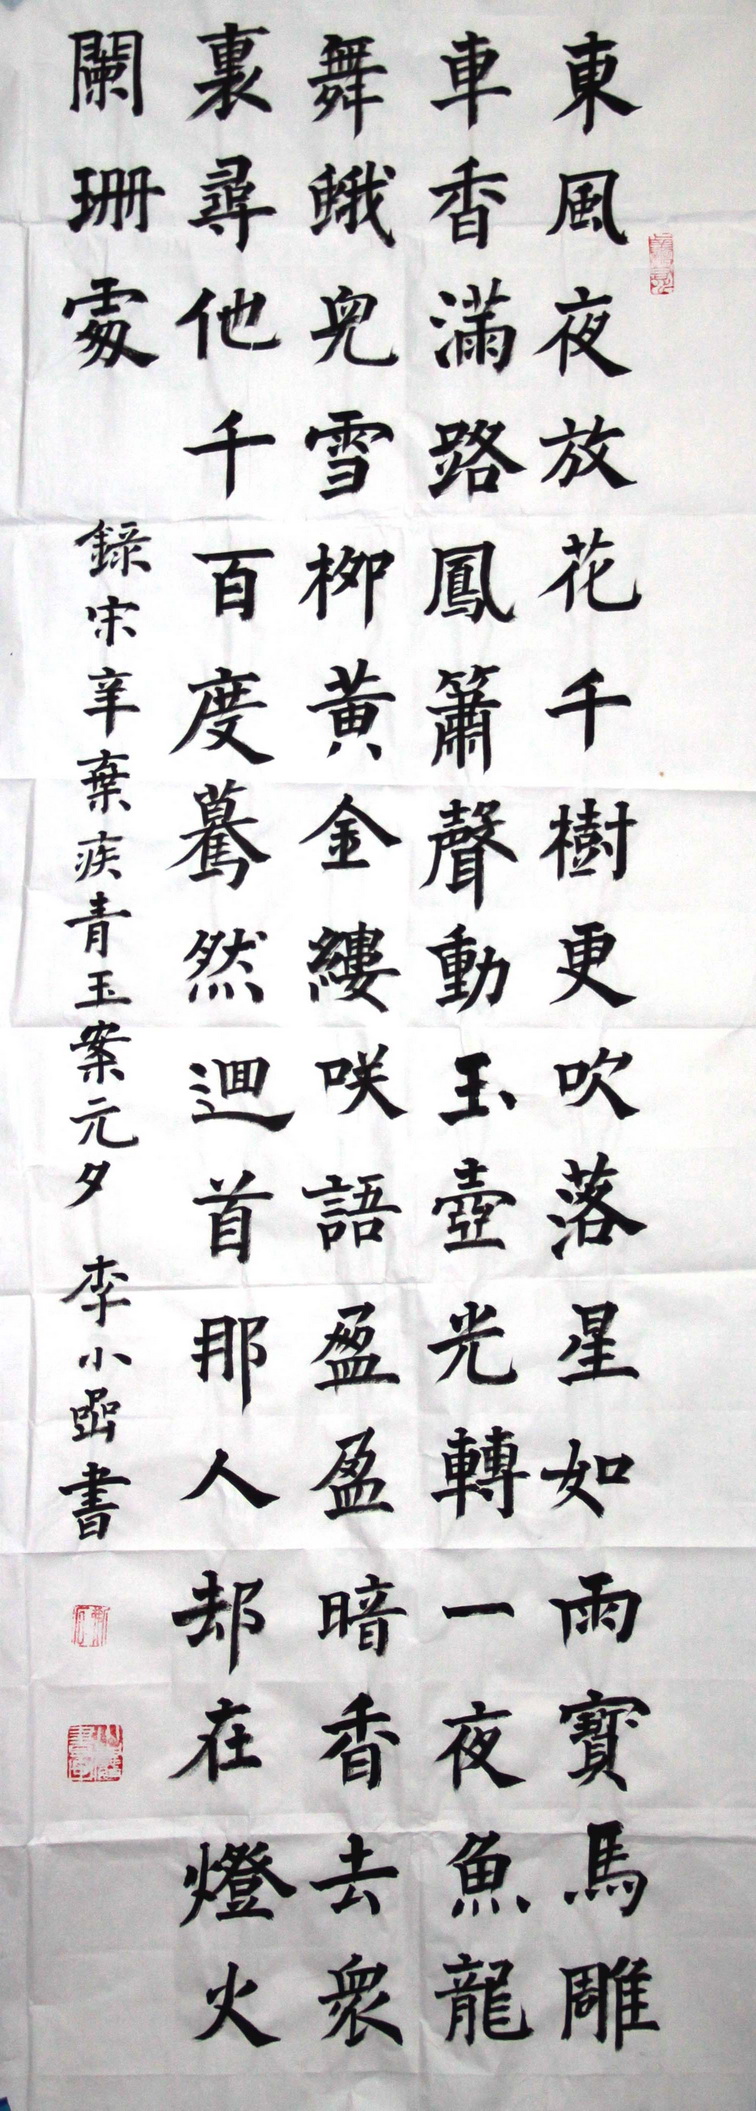 東風夜放花千樹更吹落星如雨寶馬雕
車香滿路鳳簫聲動玉壺光轉一夜魚龍
舞蛾兒雪柳黃金縷咲語盈盈暗香去衆
裏尋他千百度驀然迴首那人却在燈火
闌珊處
録宋辛棄疾青玉案元夕 李小書